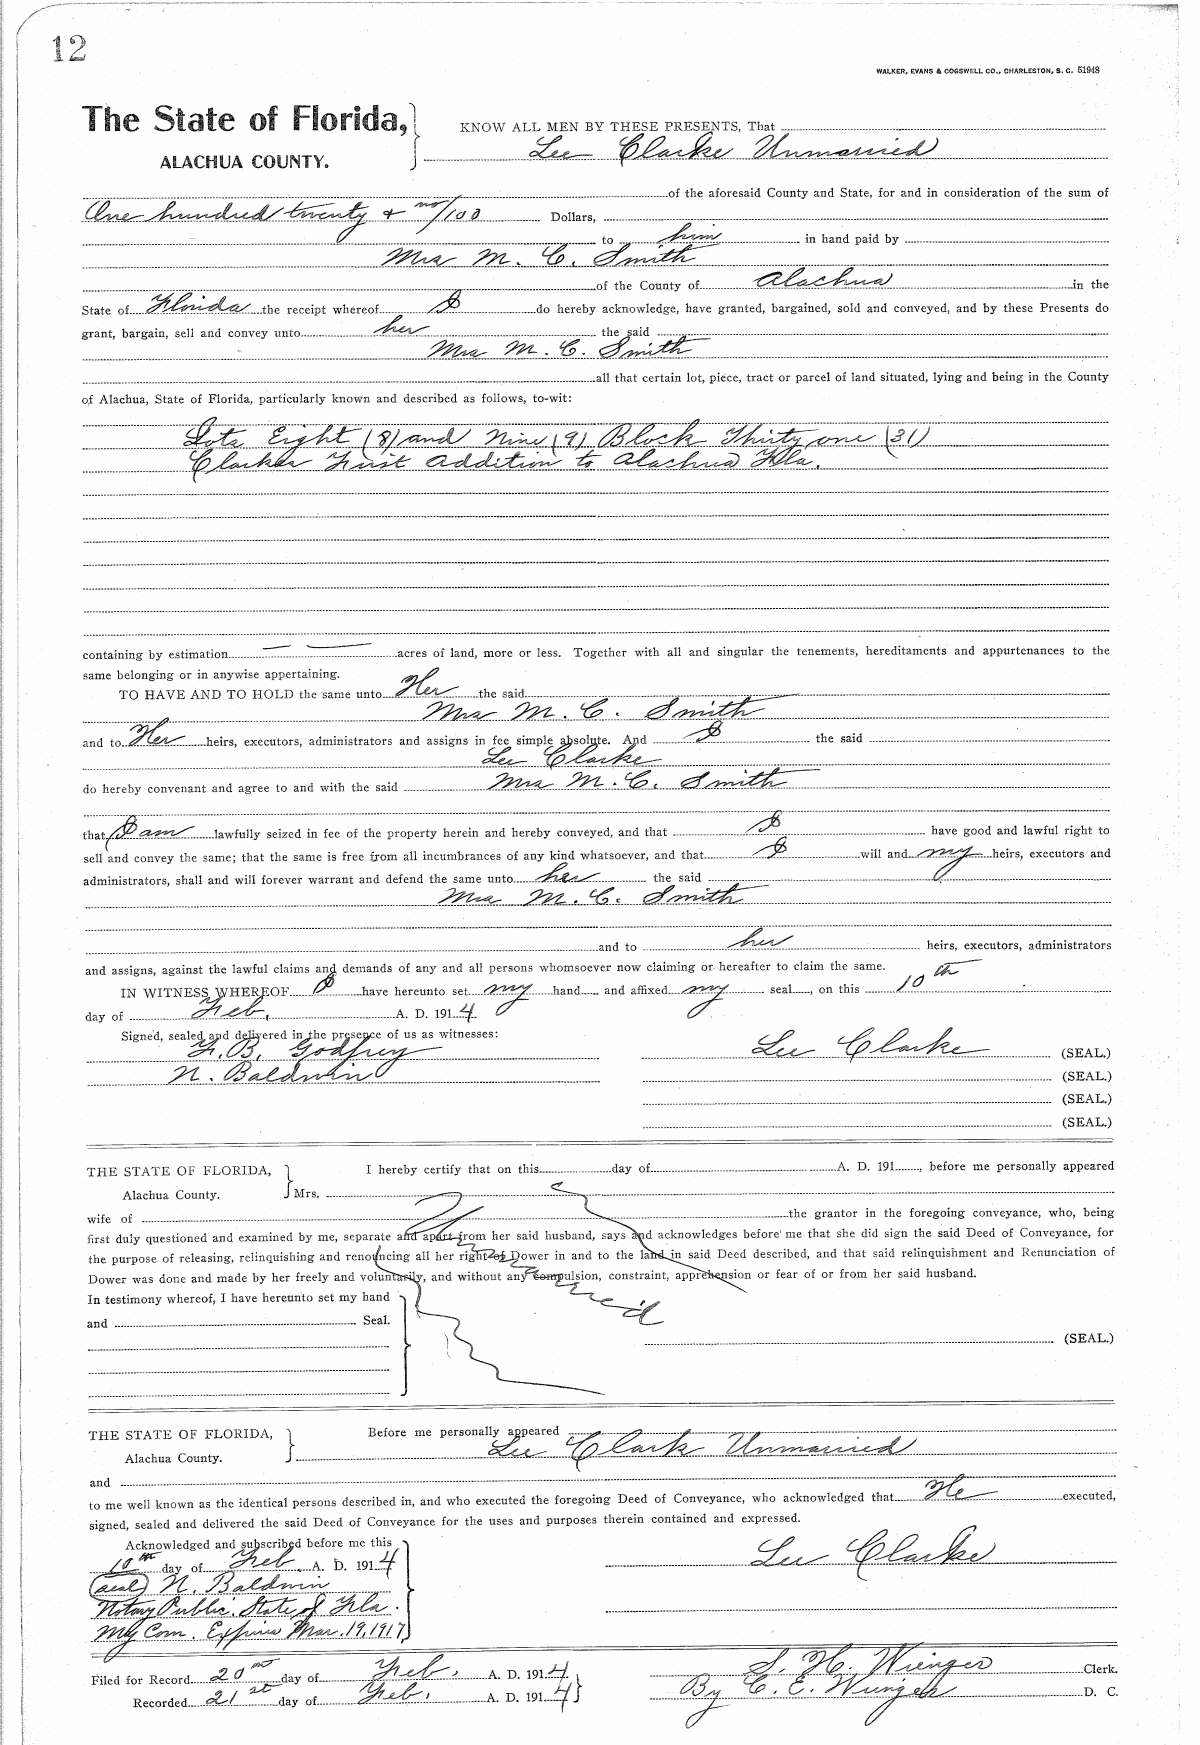 12
WALKER, EVANS & COGSWELL CO., CHARLESTON, S. C. 51948
The State of Florida,
ALACHUA COUNTY.
KNOW ALL MEN BY THESE PRESENTS, That
Lee Clarke Unmarried
of the aforesaid County and State, for and in consideration of the sum of
One hundred twenty & no/100 Dollars,
to him in hand paid by
Mrs M. C. Smith
of the County of Alachua in the
State of Florida the receipt whereof I do hereby acknowledge, have granted, bargained, sold and conveyed, and by these Presents do
grant, bargain, sell and convey unto her the said
Mrs M. C. Smith
all that certain lot, piece, tract or parcel of land situated, lying and being in the County
of Alachua, State of Florida, particularly known and described as follows, to-wit:
Lots Eight (8) and Nine (9) Block Thirty one (31)
Clarkes First Addition to Alachua Fla.
containing by estimation — — acres of land, more or less. Together with all and singular the tenements, hereditaments and appurtenances to the
same belonging or in anywise appertaining.
TO HAVE AND TO HOLD the same unto Her the said
Mrs M. C. Smith
and to Her heirs, executors, administrators and assigns in fee simple absolute. And I the said
Lee Clarke
do hereby convenant and agree to and with the said Mrs M. C. Smith
that I am lawfully seized in fee of the property herein and hereby conveyed, and that I have good and lawful right to
sell and convey the same; that the same is free from all incumbrances of any kind whatsoever, and that I will and my heirs, executors and
administrators, shall and will forever warrant and defend the same unto her the said
Mrs M. C. Smith
and to her heirs, executors, administrators
and assigns, against the lawful claims and demands of any and all persons whomsoever now claiming or hereafter to claim the same.
IN WITNESS WHEREOF I have hereunto set my hand and affixed my seal, on this 10th
day of Feb, A. D. 1914
Signed, sealed and delivered in the presence of us as witnesses:
F. B. Godfrey
N. Baldwin
Lee Clarke (SEAL.)
(SEAL.)
(SEAL.)
(SEAL.)
THE STATE OF FLORIDA,
Alachua County.
I hereby certify that on this day of A. D. 191 , before me personally appeared
Mrs.
wife of the grantor in the foregoing conveyance, who, being
first duly questioned and examined by me, separate and apart from her said husband, says and acknowledges before me that she did sign the said Deed of Conveyance, for
the purpose of releasing, relinquishing and renouncing all her right of Dower in and to the land in said Deed described, and that said relinquishment and Renunciation of
Dower was done and made by her freely and voluntarily, and without any compulsion, constraint, apprehension or fear of or from her said husband.
In testimony whereof, I have hereunto set my hand
and Seal.
(SEAL.)
THE STATE OF FLORIDA,
Alachua County.
Before me personally appeared
Lee Clark Unmarried
and
to me well known as the identical persons described in, and who executed the foregoing Deed of Conveyance, who acknowledged that He executed,
signed, sealed and delivered the said Deed of Conveyance for the uses and purposes therein contained and expressed.
Acknowledged and subscribed before me this
10th day of Feb A. D. 1914
Lee Clarke
(seal) N. Baldwin
Notary Public. State of Fla.
My Com. Expires Mar. 19, 1917
Filed for Record 20 day of Feb. A. D. 1914
S. H. Wienges Clerk.
Recorded 21st day of Feb. A. D. 1914
By C. E. Wienges D. C.